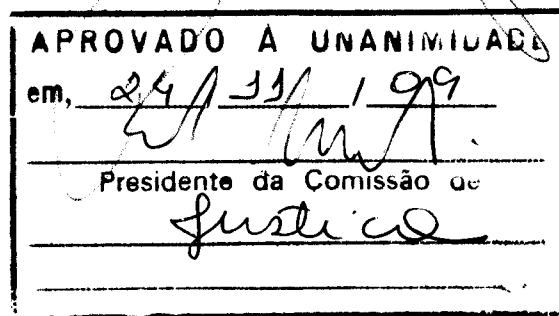 APROVADO A UNANIMIDADE
em, 24 / 11 / 99
Presidente da Comissão de
Justiça